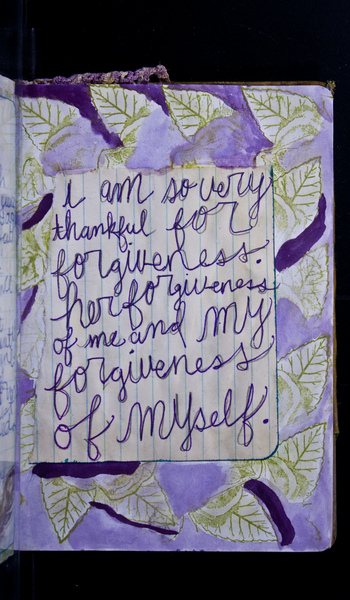 i am so very
thankful for
forgiveness.
her forgiveness
of me and my
forgiveness
of myself.